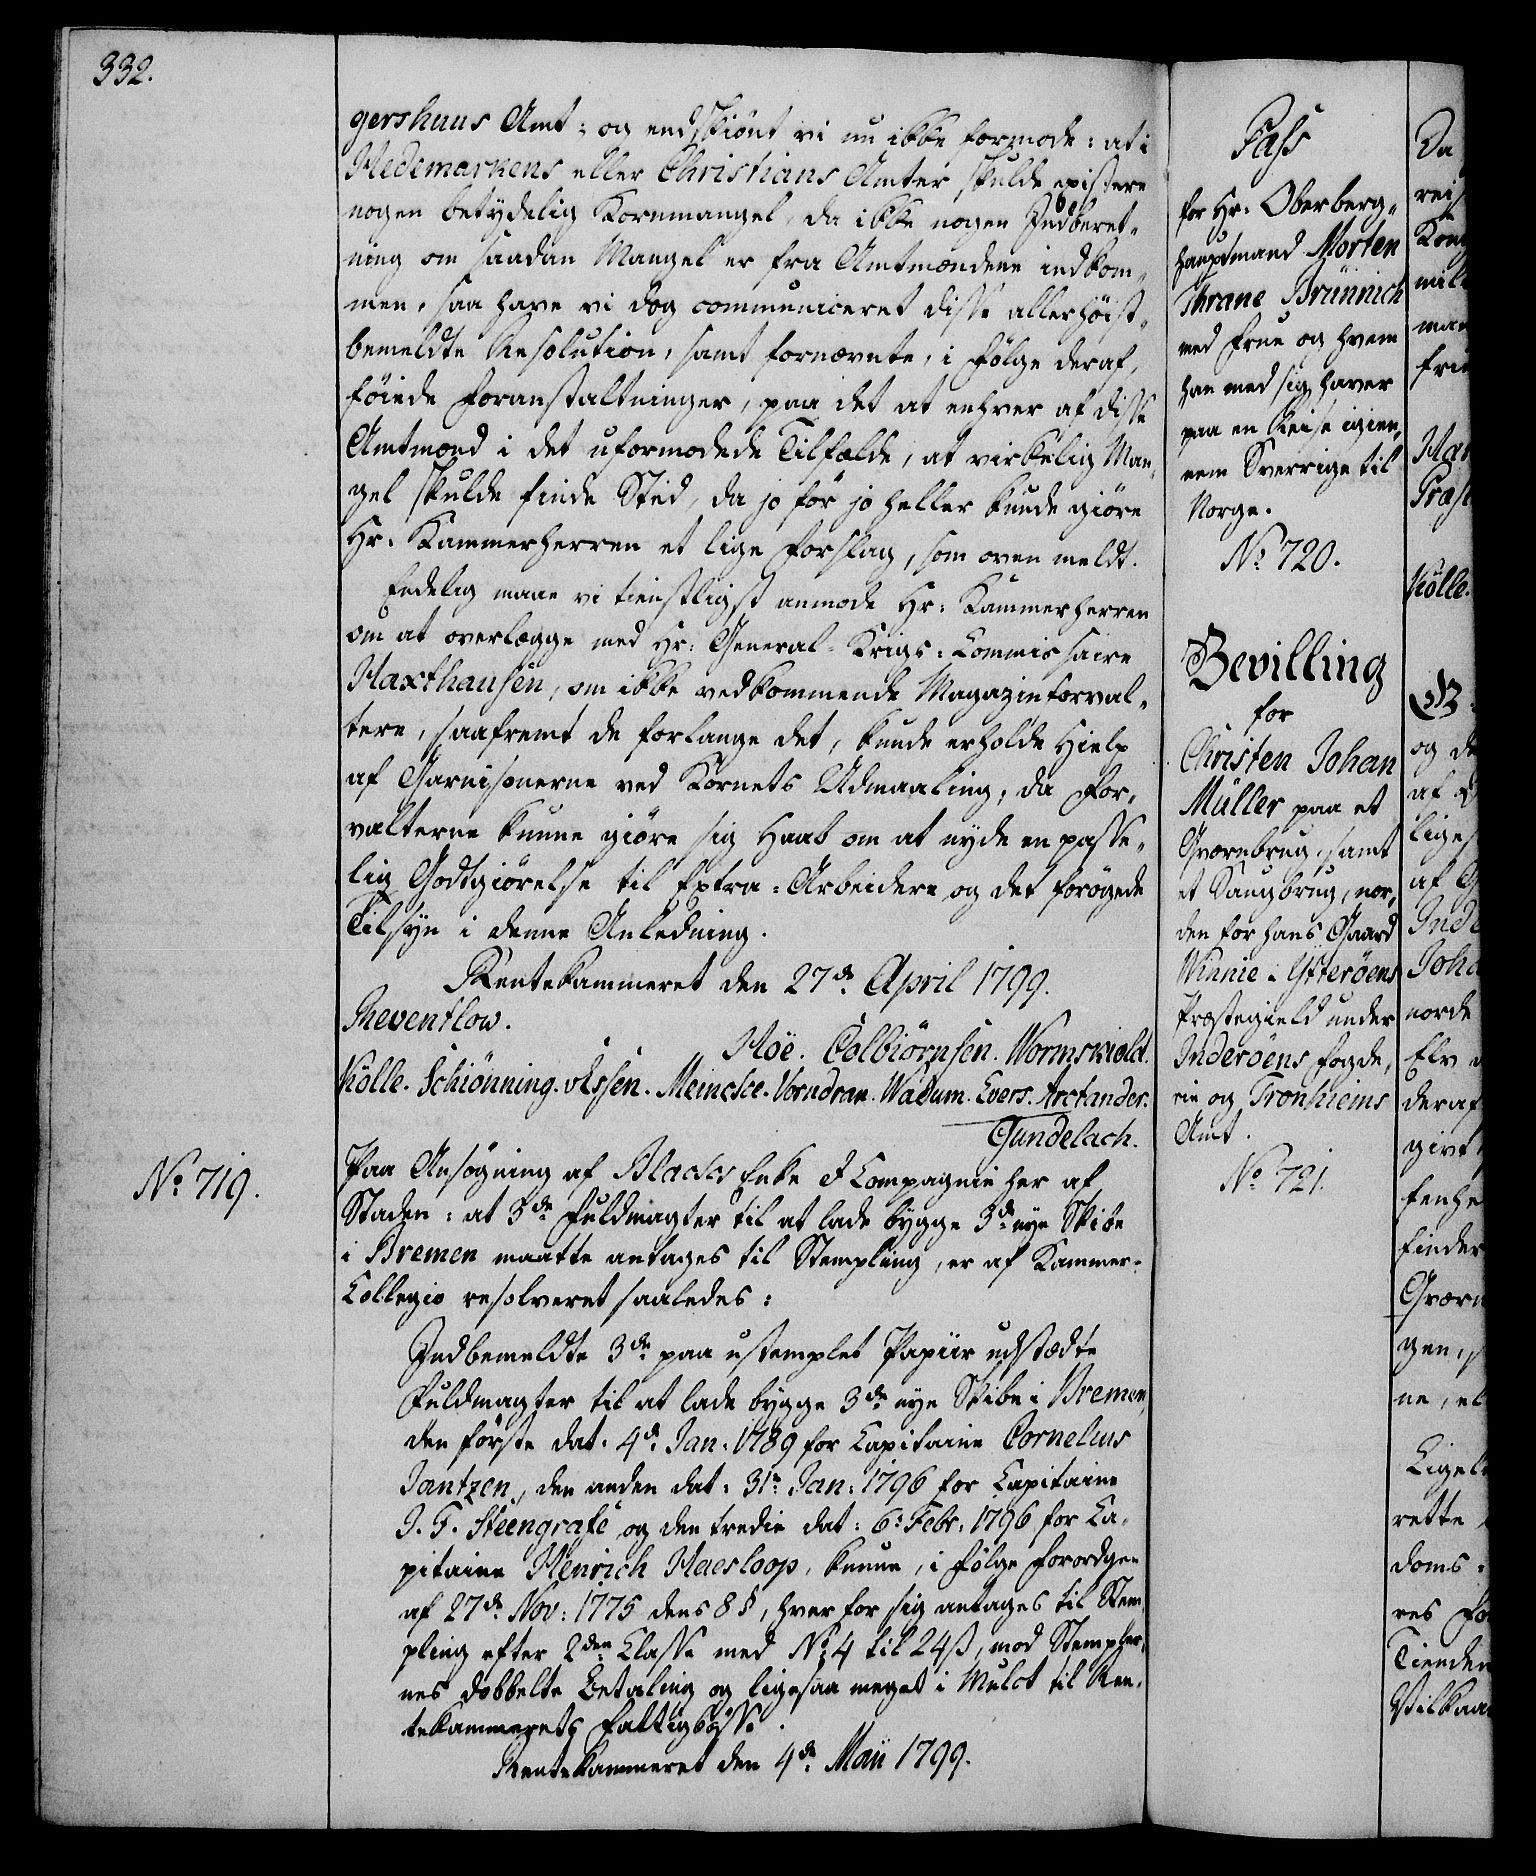 332.
gershuus Amt; og endskiönt vi nu ikke formode: at i
Hedemarkens eller Christians Amter skulde existere
nogen betydelig Kornmangel, da ikke nogen Indberet-
ning om saadan Mangel er fra Amtmændene indkom-
men, saa have vi dog communiceret disse allerhöist-
bemeldte Resolution, samt fornævnte, i fölge deraf,
föiede Foranstaltninger, paa det at enhver af disse
Amtmænd i det uformodede Tilfælde, at virkelig Man-
gel skulde finde Sted, da jo för jo heller kunde giöre
Hr. Kammerherren et lige Forslag, som oven meldt.
Endelig maae vi tienstligst anmode Hr. Kammerherren
om at overlægge med Hr. General-Krigs-Commissaire
Haxthausen, om ikke vedkommende Magazinforval-
tere, saafremt de forlange det, kunde erholde Hielp
af Garnisonerne ved Kornets Udmaaling, da For-
valterne kunne giöre sig Haab om at nyde en passe-
lig Godtgiörelse til Extra-Arbeidere og det forögede
Tilsyn i denne Anledning.
Rentekammeret den 27de April 1799.
Reventlow.
Hoë. Colbiörnsen. Wormskiold.
Kölle. Schiönning. Assen. Meincke. Vorndran. Wadum. Evers. Arctander.
Gundelach.
No 719.
Paa Ansögning af Blacks Enke & Compagnie her af
Staden: at 3de Fuldmagter til at lade bygge 3de nye Skibe
i Bremen maatte antages til Stempling, er af Kammer-
Collegio resolveret saaledes:
Indbemeldte 3de paa ustemplet Papiir udstædte
Fuldmagter til at lade bygge 3de nye Skibe i Bremen,
den förste dat. 4de Jan. 1789 for Capitaine Cornelius
Jantzen, den anden dat. 31te Jan. 1796 for Capitaine
J. F. Steengrafe og den tredie dat. 6te Febr. 1796 for Ca-
pitaine Henrich Haesloop, kunne, i fölge Forordgen
af 27de Nov. 1775 dens 8 §, hver for sig antages til Stem-
pling efter 2den Classe med No 4 til 24 ß, mod Stempler-
nes dobbelte Betaling og ligesaa meget i Mulct til Ren-
tekammerets Fattigbösse.
Rentekammeret den 4de Maii 1799.
Pass
for Hr. Oberberg-
hauptmand Morten
Thrane Brünnich
med Frue og hvem
han med sig haver
paa en Reise igien-
nem Sverrige til
Norge.
No 720.
Bevilling
for
Christen Johan
Müller paa et
Qværnbrug, samt
et Saugbrug, nor-
den for hans Gaard
Winnie i Ytteröens
Præstegield under
Inderöens Fogde-
rie og Tronhiems
Amt.
No 721.
Da
reis
Kong
mill
man
frie
Kölle.
og de
af
liges
af
Inde
Joha
norde
Elv
deraf
givt
finder
Qværn
gen,
ne, el
Ligel
rette
doms-
res
Tienden
Vilkaar